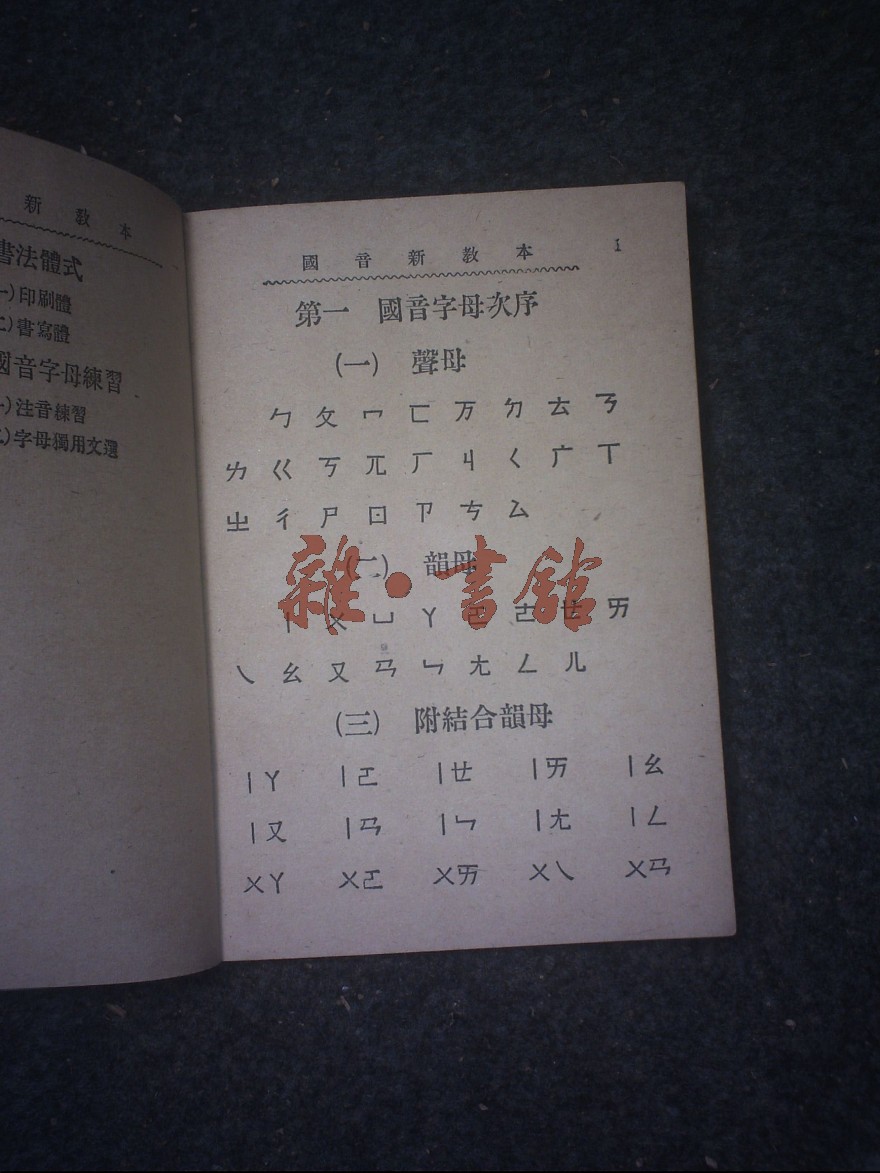 新教本
書法體式
一)印刷體
二)書寫體
國音字母練習
一)注音練習
二)字母獨用文選
國音新教本 1
第一 國音字母次序
(一) 聲母
ㄅ ㄆ ㄇ ㄈ ㄪ ㄉ ㄊ ㄋ
ㄌ ㄍ ㄎ ㄫ ㄏ ㄐ ㄑ ㄬ ㄒ
ㄓ ㄔ ㄕ ㄖ ㄗ ㄘ ㄙ
(二) 韻母
雜·書館
ㄧ ㄨ ㄩ ㄚ ㄛ ㄜ ㄝ ㄞ
ㄟ ㄠ ㄡ ㄢ ㄣ ㄤ ㄥ ㄦ
(三) 附結合韻母
ㄧㄚ ㄧㄛ ㄧㄝ ㄧㄞ ㄧㄠ
ㄧㄡ ㄧㄢ ㄧㄣ ㄧㄤ ㄧㄥ
ㄨㄚ ㄨㄛ ㄨㄞ ㄨㄟ ㄨㄢ